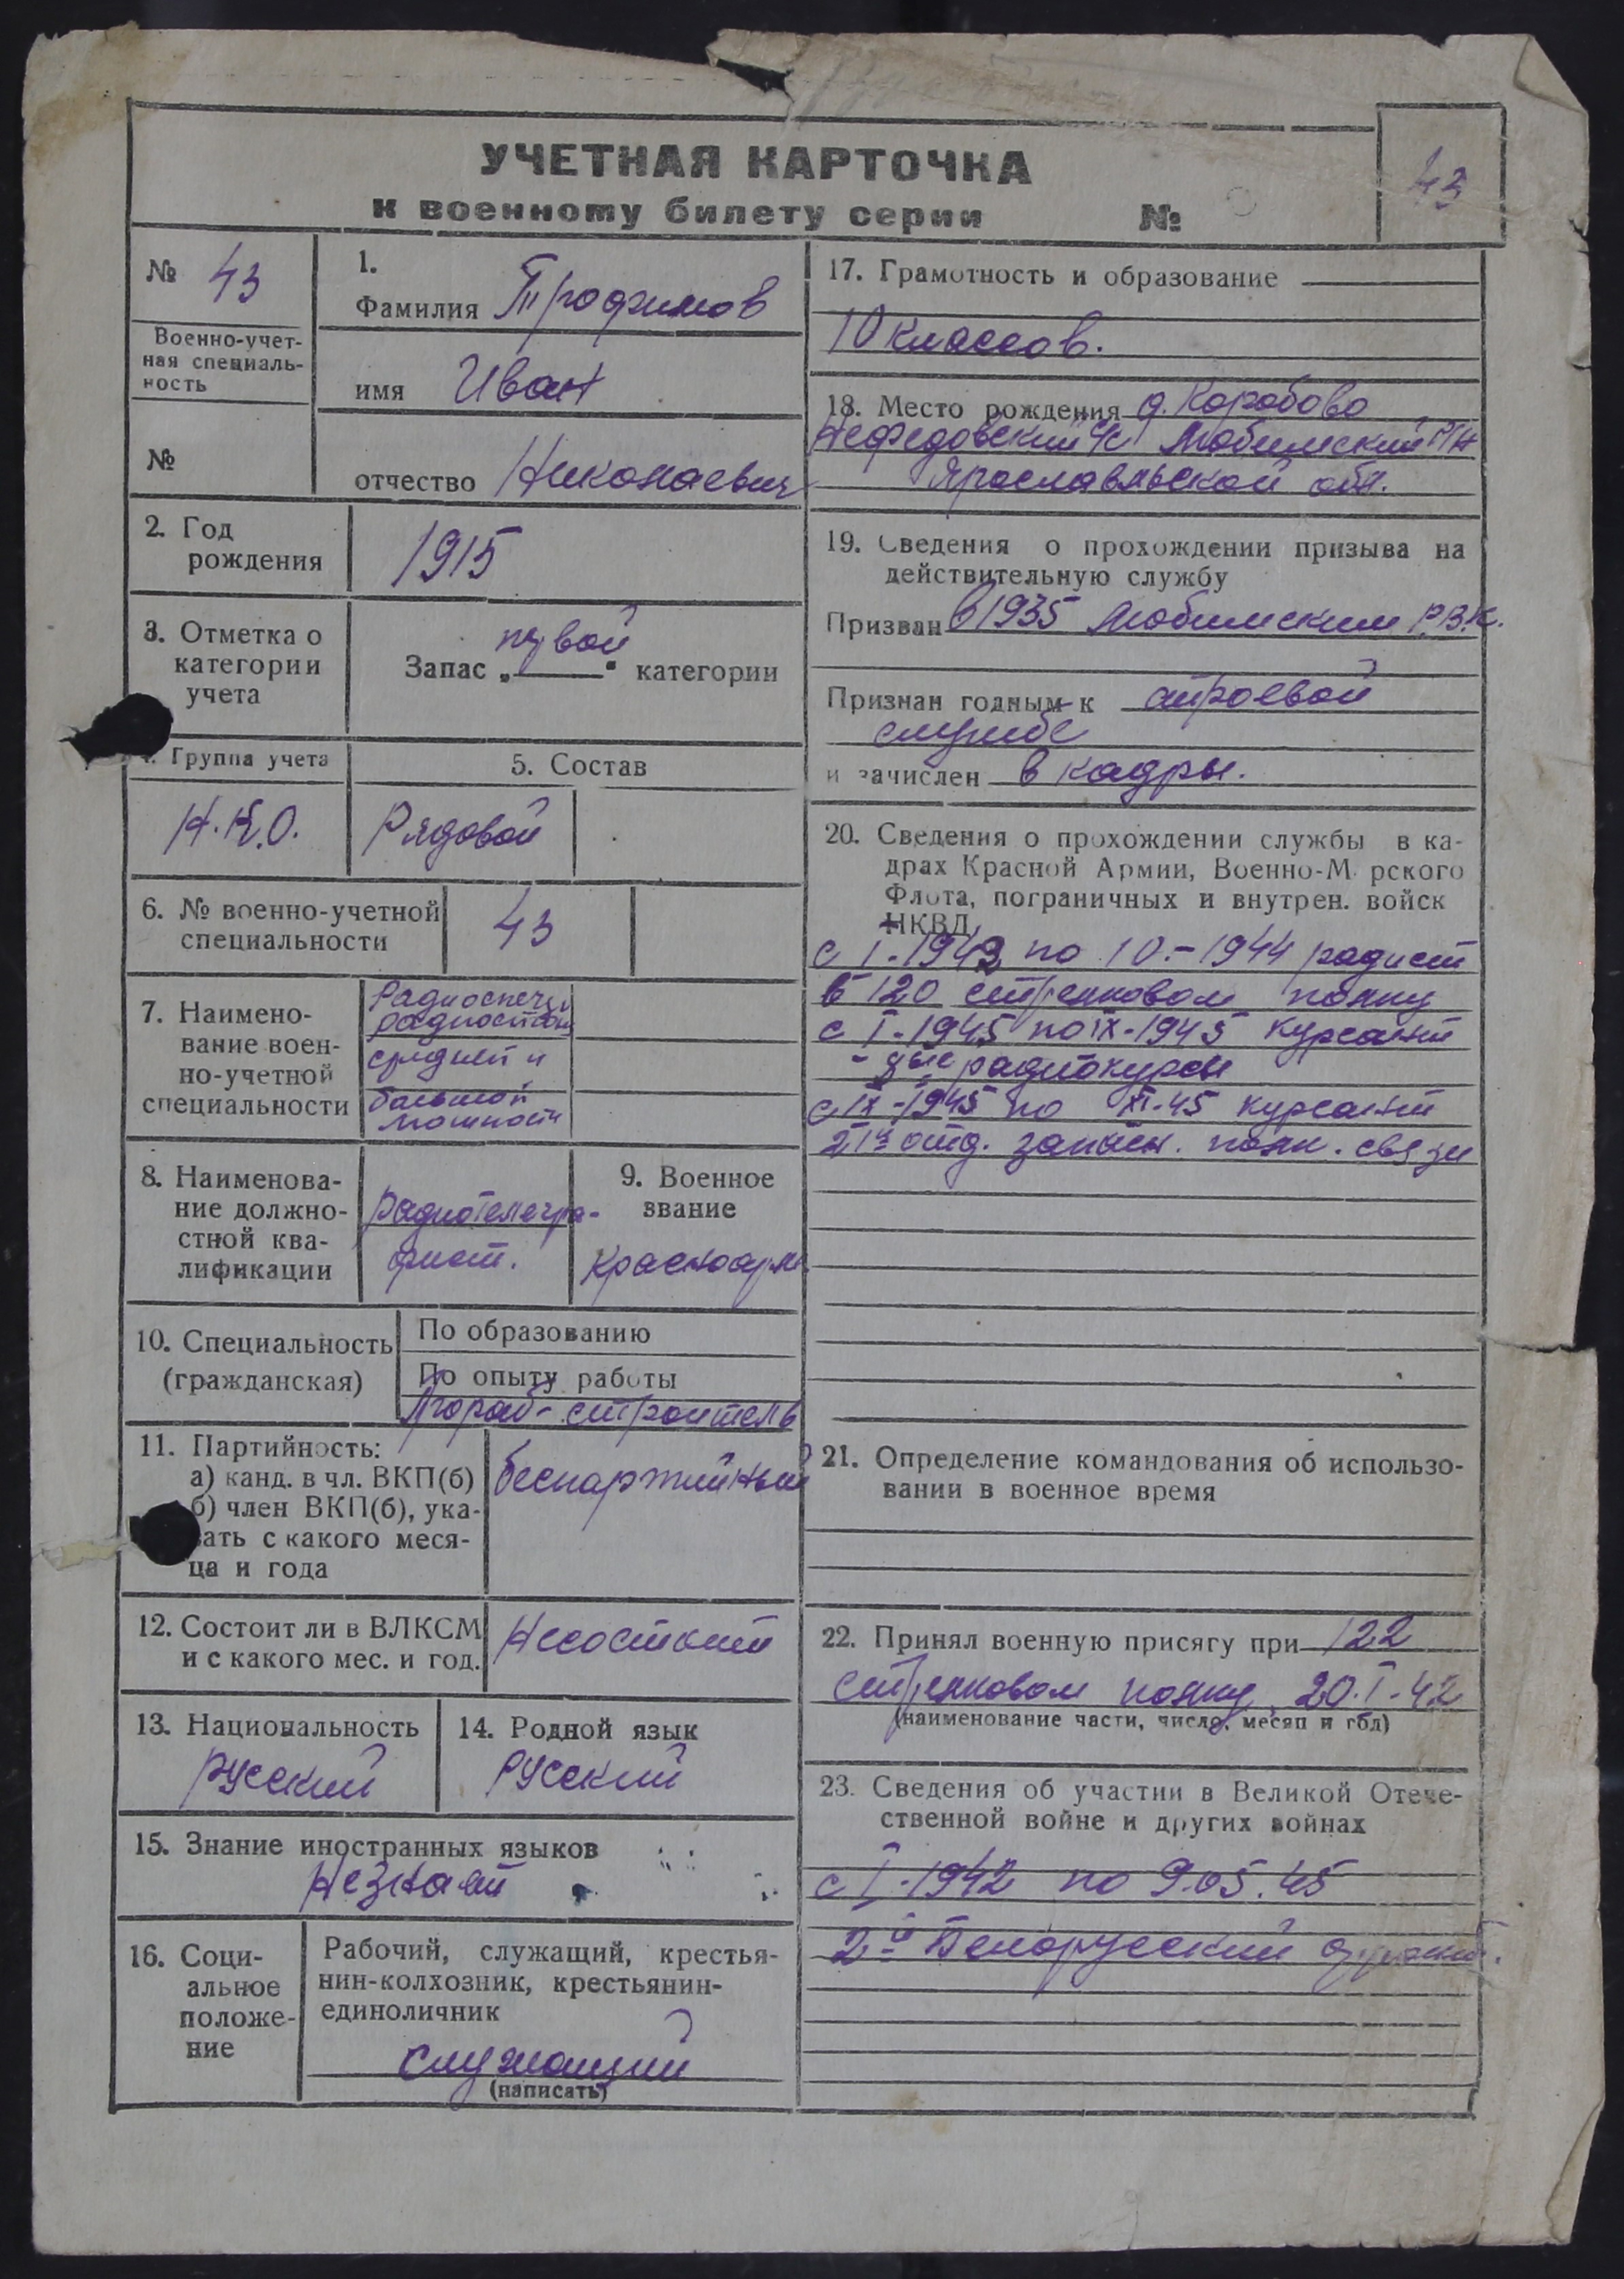 УЧЕТНАЯ КАРТОЧКА
к военному билету серии №
43
№ 43
Военно-учет-
ная специаль-
ность
№
1.
Фамилия Трофимов
имя Иван
отчество Николаевич
2. Год
рождения
1915
3. Отметка о
категории
учета
Запас „первой“ категории
Группа учета
Н.К.О.
5. Состав
Рядовой
6. № военно-учетной
специальности
43
7. Наимено-
вание воен-
но-учетной
специальности
средней и
большой
мощности
8. Наименова-
ние должно-
стной ква-
лификации
радиотелегра-
фист.
9. Военное
звание
Красноарм.
10. Специальность
(гражданская)
По образованию
По опыту работы
Прораб-строитель
11. Партийность:
а) канд. в чл. ВКП(б)
б) член ВКП(б), ука-
зать с какого меся-
ца и года
беспартийный
12. Состоит ли в ВЛКСМ
и с какого мес. и год.
Несостоит
13. Национальность
Русский
14. Родной язык
Русский
15. Знание иностранных языков
Незнает
16. Соци-
альное
положе-
ние
Рабочий, служащий, крестья-
нин-колхозник, крестьянин-
единоличник
служащий
(написать)
17. Грамотность и образование
10 классов.
18. Место рождения д. Коробово
Нефедовский с/с Любимский р/н
Ярославльской обл.
19. Сведения о прохождении призыва на
действительную службу
Призван в 1935 Любимским Р.В.К.
Признан годным к строевой
службе
и зачислен в кадры.
20. Сведения о прохождении службы в ка-
драх Красной Армии, Военно-М рского
Флота, пограничных и внутрен. войск
НКВД
с I-1942 по 10-1944 радист
в 120 стрелковом полку
с I-1945 по IX-1945 курсант
радиокурсы
с IX-1945 по XI-45 курсант
21й отд. запасн. полк. связи
21. Определение командования об использо-
вании в военное время
22. Принял военную присягу при 122
стрелковом полку 20.I-42
(наименование части, число, месяц и год)
23. Сведения об участии в Великой Отече-
ственной войне и других войнах
с I-1942 по 9.05.45
2й Белорусский фронт.